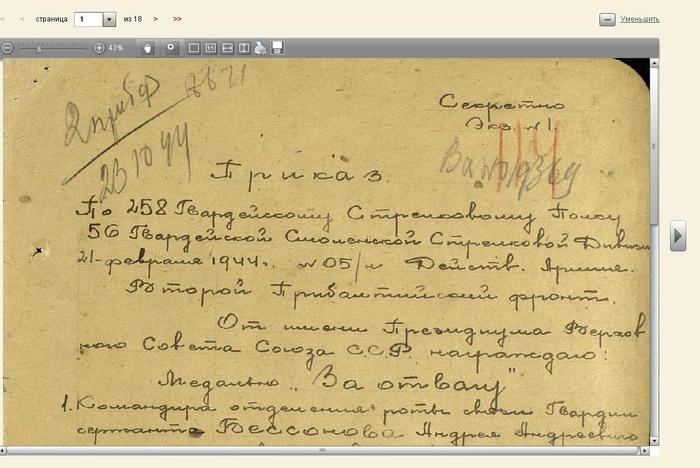 страница 1 из 18
Уменьшить
43%
2 приб ф
23 10 44
Секретно
Экз. №1.
Приказ
По 258 Гвардейскому Стрелковому Полку
56 Гвардейской Смоленской Стрелковой Дивизи
21-февраля 1944г. №05/н Действ. Армия.
Второй Прибалтийский фронт.
От имени Президиума Верхов
ного Совета Союза ССР награждаю:
Медалью „За отвагу"
1. Командира отделения роты связи Гвардии
сержанта Бессонова Андрея Андреевича